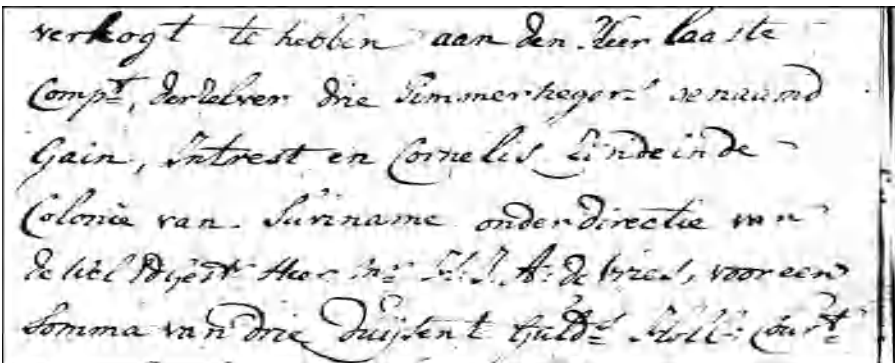 verkogt te hebben aan den Heer laaste
Compt, derzelver drie Timmerneger.s genaamd
Gain, Intrest en Cornelis Zinde in de
Colonie van Suriname onder directie van
de wel Mr. A: de Vries, voor een
Somma van drie Duijsent Guld.s Holl: Cour.t